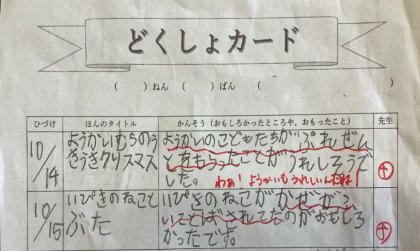 どくしょカード
( )ねん ( )ぱん (
ひづけ ほんのタイトル かんそう(おもしろかったところや、おもったこと) 先生
10/14 ようかいむらのう ようかいのこどもたちがぷれぜん
きうきクリスマス とをもらったことがうれしろうで
した。 わあ!ようかいもうれしいんだね!
10/15 いぴきのねこと いぴきのねこがかぜがふ
ぶた いてとばされてたのがおもしろ
かったです。